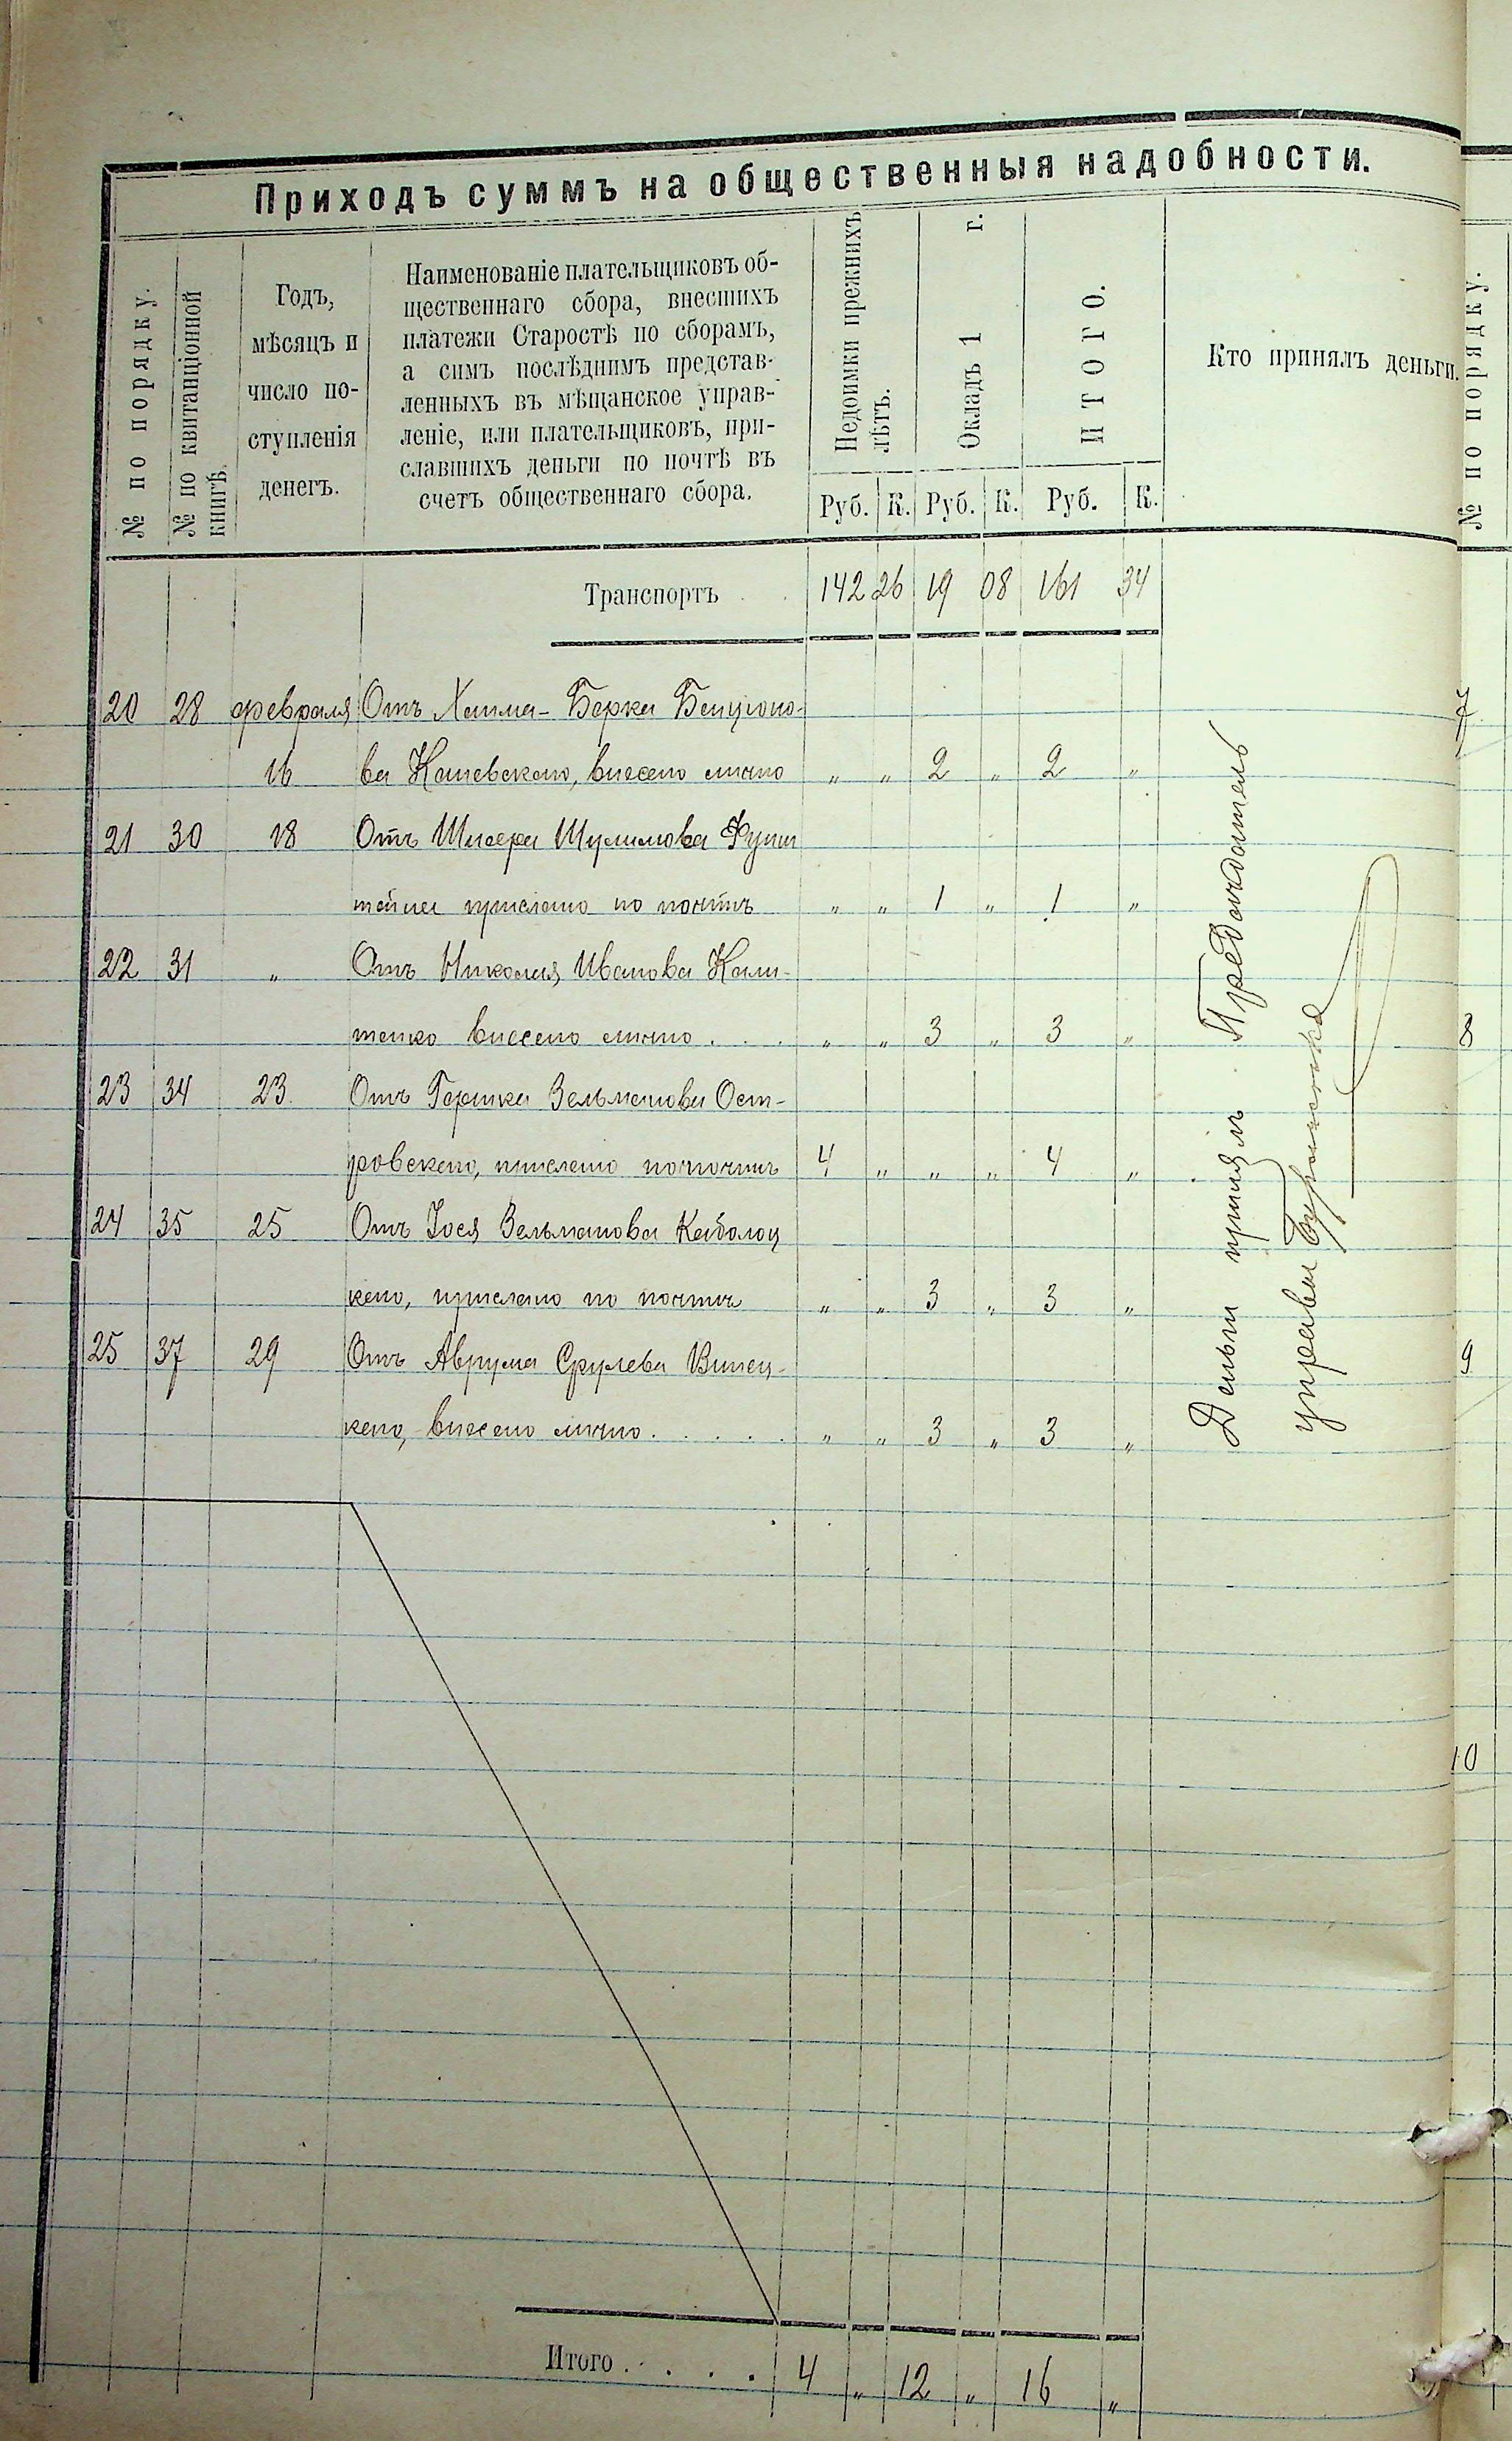 Приходъ суммъ на общественныя надобности.
№ по порядку.
№ по квитанціонной
книгѣ.
Годъ,
мѣсяцъ и
число по-
ступленія
денегъ.
Наименованіе плательщиковъ об-
щественнаго сбора, внесшихъ
платежи Старостѣ по сборамъ,
а симъ послѣднимъ представ-
ленныхъ въ мѣщанское управ-
леніе, или плательщиковъ, при-
славшихъ деньги по почтѣ въ
счетъ общественнаго сбора.
Недоимки прежнихъ
лѣтъ.
Окладъ 1 г.
ИТОГО.
Кто принялъ деньги.
Руб. К. Руб. К. Руб. К.
Транспортъ 142 26 19 08 161 34
20 28 февраля Отъ Хаима-Берка Бенціоно-
16 ва Каневскаго, внесено лично „ „ 2 „ 2 „
21 30 18 Отъ Шлиомы Шулимова
штейна прислано по почтѣ „ „ 1 „ 1 „
22 31 „ Отъ Николая Иванова Кали-
тенко внесено лично . . . „ „ 3 „ 3 „
23 34 23 Отъ Гершка Зельманова Ост-
ровскаго, прислано по почтѣ 4 „ „ „ 4 „
24 35 25 Отъ Іося Зельманова
каго, прислано по почтѣ „ „ 3 „ 3 „
25 37 29 Отъ Аврума Срулева Винец-
каго, внесено лично . . . . . „ „ 3 „ 3 „
Деньги принялъ Предсѣдатель
управы
Итого . . . . 4 „ 12 „ 16 „
№ по порядку.
7
8
9
10